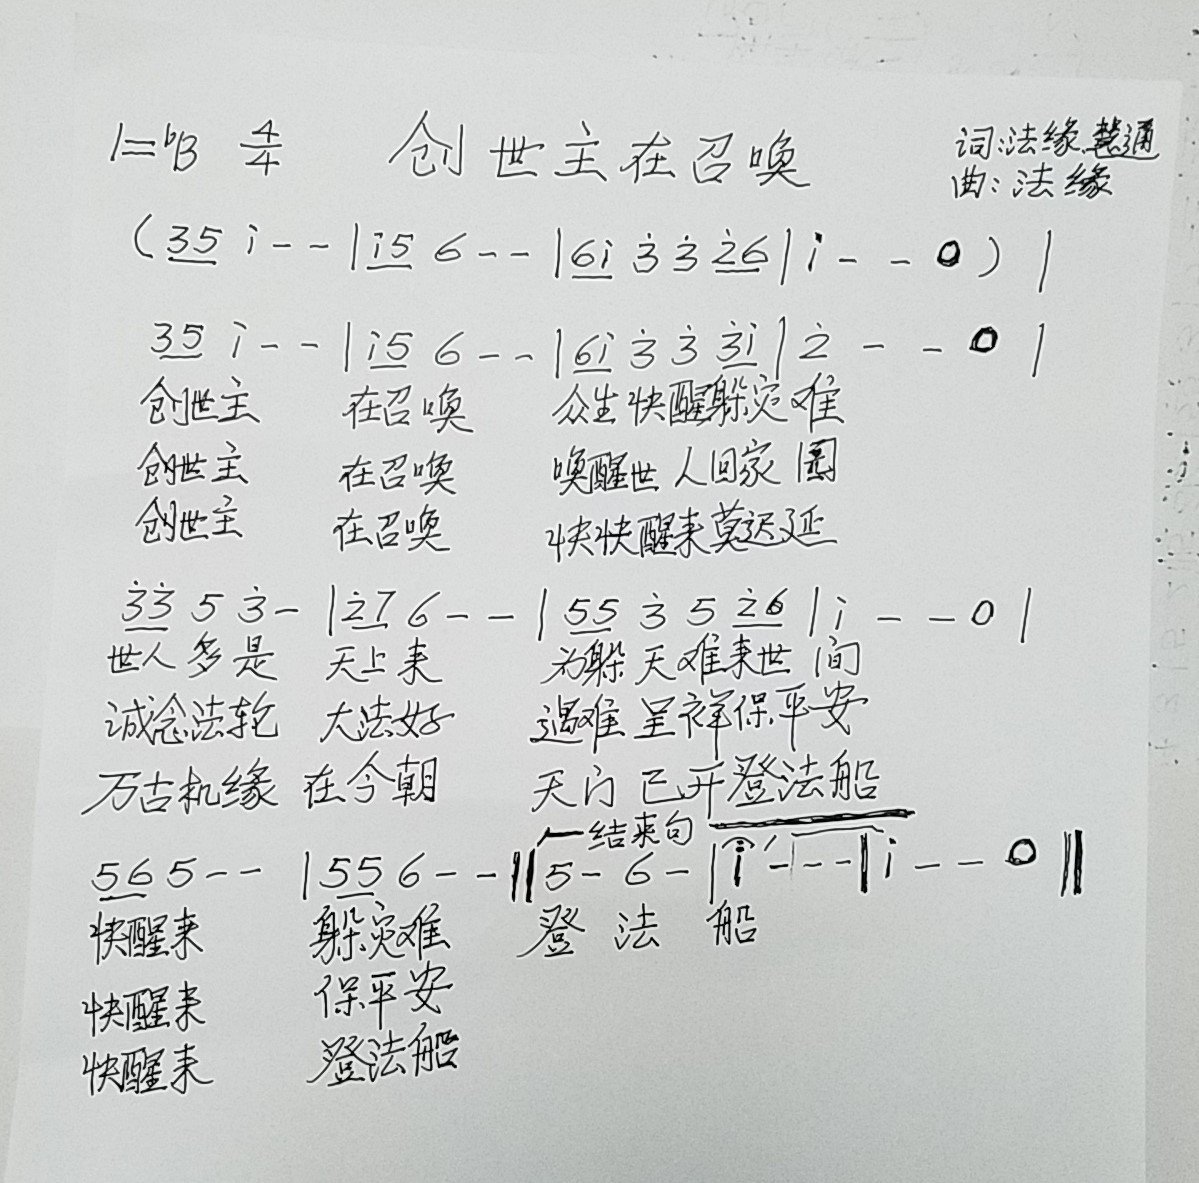 1=ᵇB 4/4 创世主在召唤 词:法缘.慧通
曲:法缘
(35 i̇-- |i̇5 6-- |6i̇ 3̇ 3̇ 2̇6 | i̇ - - 0 ) |
35 i̇-- |i̇5 6-- |6i̇ 3̇ 3̇ 3̇i̇ | 2̇ - - 0 |
创世主 在召唤 众生快醒躲灾难
创世主 在召唤 唤醒世人回家园
创世主 在召唤 快快醒来莫迟延
3̇3̇ 5 3̇- |2̇7 6-- |55 3̇ 5 2̇6 | i̇ - - 0 |
世人多是 天上来 为躲天难来世间
诚念法轮 大法好 遇难呈祥保平安
万古机缘 在今朝 天门已开登法船
结束句
56 5-- |55 6--‖5- 6- | i̇ - - - | i̇ - - 0 ‖
快醒来 躲灾难 登法船
快醒来 保平安
快醒来 登法船